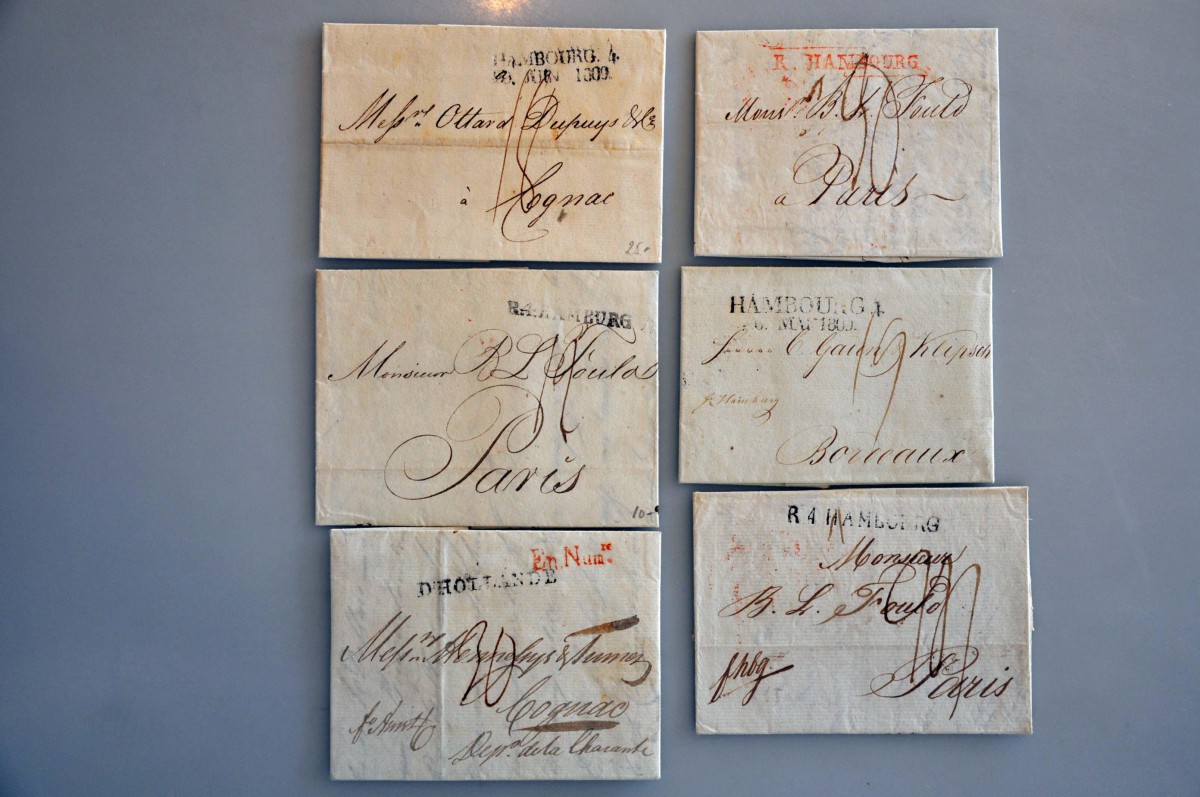 HAMBOURG. 4.
JUIN 1809.
Messrs. Ottard Dupuys & Co
à Cognac
25.-
R. HAMBOURG
Monsr. B. L. Fould
a Paris
R.4. HAMBURG
Monsieur B L Fould
Paris
10-
HAMBOURG 4.
6. MAI 1809.
Klipsch
fr Hamburg
Bordeaux
En Numre
D'HOLLANDE
Messrs
Cognac
Depnt de la Charante
R 4 HAMBOURG
Monsieur
B. L. Fould
fhbg.
Paris